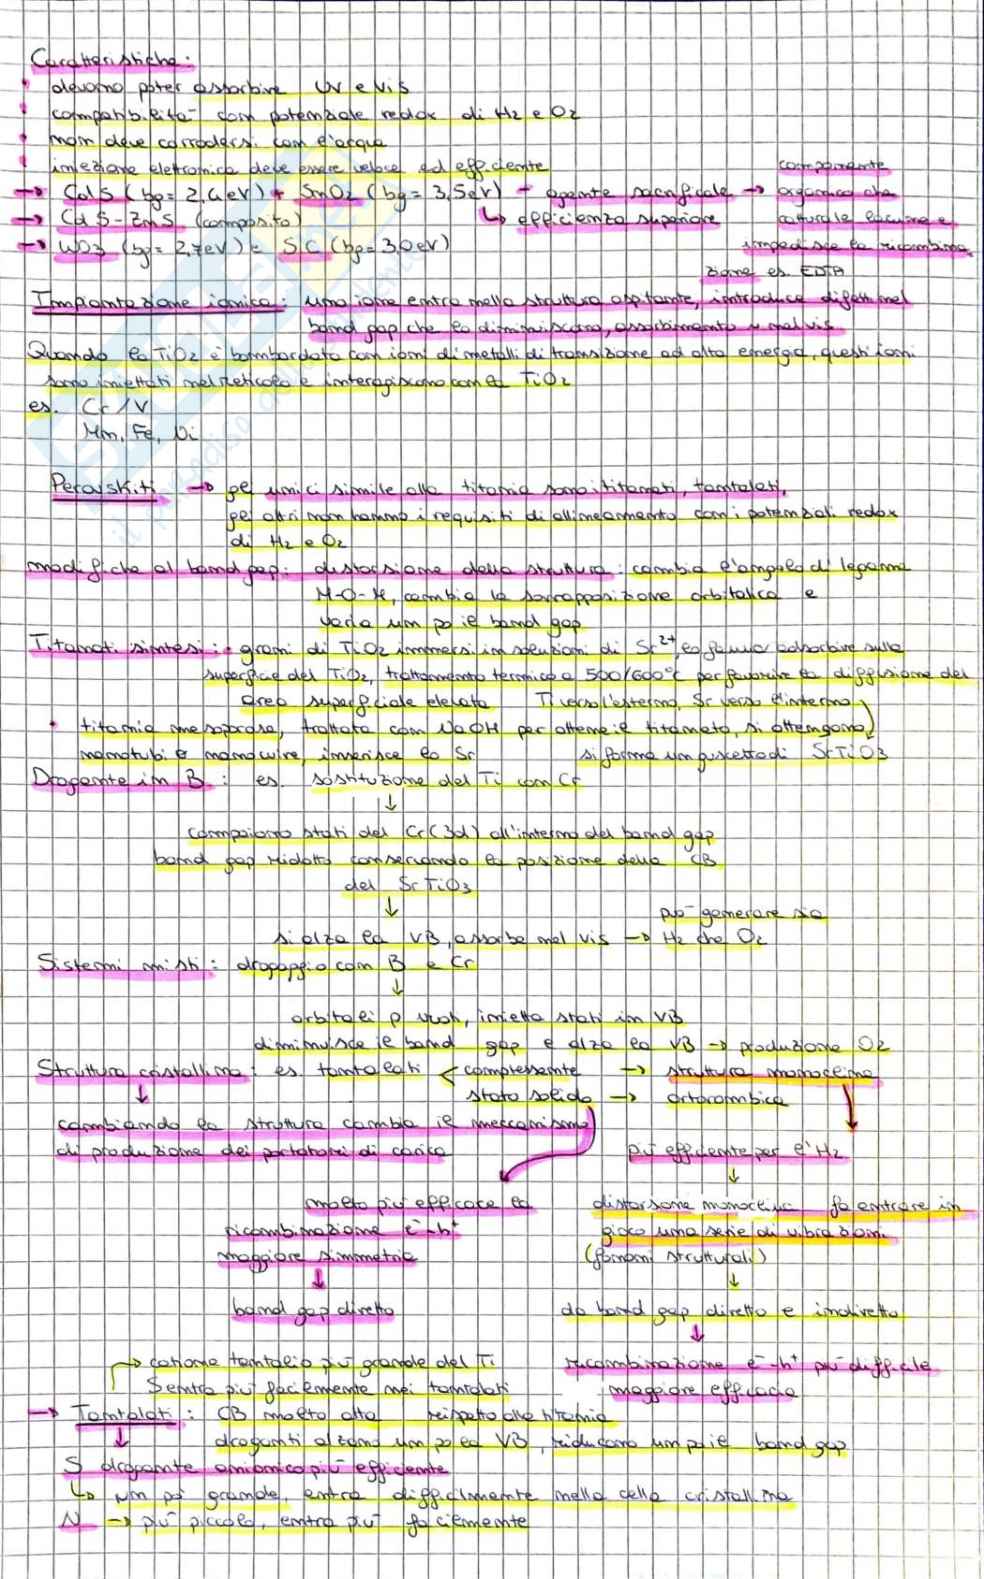 Caratteristiche:
• devono poter assorbire UV e Vis
• compatibilità con potenziale redox di H2 e O2
• non deve corrodersi con l'acqua
• iniezione elettronica deve essere veloce ed efficiente
→ CdS (bg= 2,4 eV) + SnO2 (bg= 3,5 eV) + agente sacrificale → componente organico che cattura le lacune e impedisce la ricombinazione es. EDTA
↳ efficienza superiore
→ CdS-ZnS (composito)
→ WO3 (bg= 2,7 eV) e SiC (bg= 3,0 eV)
Impiantazione ionica: uno ione entra nella struttura ospitante, introduce difetti nel
band gap che lo diminuiscono, assorbimento nel vis
Quando la TiO2 è bombardata con ioni di metalli di transizione ad alta energia, questi ioni
sono iniettati nel reticolo e interagiscono con la TiO2
es. Cr/V
Mn, Fe, Ni
Perovskiti → gli unici simile alla titania sono i titanati, tantalati,
gli altri non hanno i requisiti di allineamento con i potenziali redox
di H2 e O2
modifiche al band gap: distorsione della struttura: cambia l'angolo di legame
M-O-M, cambia la sovrapposizione orbitalica e
varia un po il band gap
Titanati sintesi: • grani di TiO2 immersi in soluzioni di Sr2+, lo fanno adsorbire sulla
superficie del TiO2, trattamento termico a 500/600°C per favorire la diffusione del
area superficiale elevata Ti verso l'esterno, Sr verso l'interno
• titania mesoporosa, trattata con NaOH per ottenere il titanato, si ottengono
nanotubi e nanowire, inserisce lo Sr si forma un guscetto di SrTiO3
Drogante in B: es. sostituzione del Ti con Cr
↓
compaiono stati del Cr(3d) all'interno del band gap
band gap ridotto conservando la posizione della CB
del SrTiO3
↓
si alza la VB, assorbe nel vis → può generare sia H2 che O2
Sistemi misti: drogaggio con B e Cr
↓
orbitali p vuoti, inietta stati in VB
diminuisce il band gap e alza la VB → produzione O2
Struttura cristallina: es. tantalati < complessante → struttura monoclina
↓ stato solido → ortorombica
cambiando la struttura cambia il meccanismo
di produzione dei portatori di carica
più efficiente per l'H2
↓
molto più efficace la
ricombinazione e- - h+
maggiore simmetria
↓
band gap diretto
distorsione monoclina fa entrare in
gioco una serie di vibrazioni
(fononi strutturali)
↓
da band gap diretto e indiretto
↓
ricombinazione e- - h+ più difficile
maggiore efficacia
→ catione tantalio più grande del Ti
S entra più facilmente nei tantalati
→ Tantalati: CB molto alta rispetto alla titania
↓ droganti alzano un po la VB, riducono un po il band gap
S drogante anionico più efficiente
↳ un po' grande, entra difficilmente nella cella cristallina
N → più piccolo, entra più facilmente